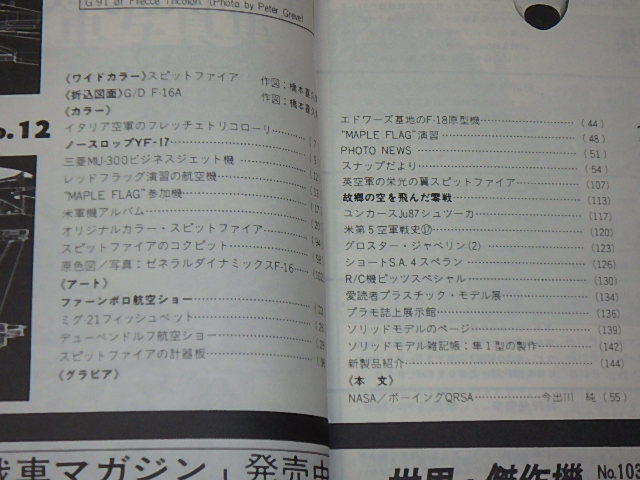 G 91 of Frecce Tricolori (Photo by Peter Greve)
No.12
《ワイドカラー》スピットファイア 作図：橋本喜久男
《折込図面》G/D F-16A 作図：橋本喜久男
《カラー》
イタリア空軍のフレッチェトリコローリ……(7)
ノースロップYF-17……(9)
三菱MU-300ビジネスジェット機……(12)
レッドフラッグ演習の航空機……(13)
"MAPLE FLAG"参加機……(17)
米軍機アルバム……(20)
オリジナルカラー・スピットファイア……(94)
スピットファイアのコクピット……(98)
原色図／写真：ゼネラルダイナミックスF-16……(102)
《アート》
ファーンボロ航空ショー……
ミグ-21フィッシュベット……
デューベンドルフ航空ショー……
スピットファイアの計器板……
《グラビア》
エドワーズ基地のF-18原型機……(44)
"MAPLE FLAG"演習……(48)
PHOTO NEWS……(51)
スナップだより……(54)
英空軍の栄光の翼スピットファイア……(107)
故郷の空を飛んだ零戦……(113)
ユンカースJu87シュツーカ……(117)
米第5空軍戦史⑰……(120)
グロスター・ジャベリン(2)……(123)
ショートS.A.4スペラン……(126)
R/C機ピッツスペシャル……(130)
愛読者プラスチック・モデル展……(134)
プラモ誌上展示館……(136)
ソリッドモデルのページ……(139)
ソリッドモデル雑記帳：隼1型の製作……(142)
新製品紹介……(144)
《本 文》
NASA／ボーイングQRSA……今出川 純(55)
戦車マガジン」発売中
世界の傑作機 No.103